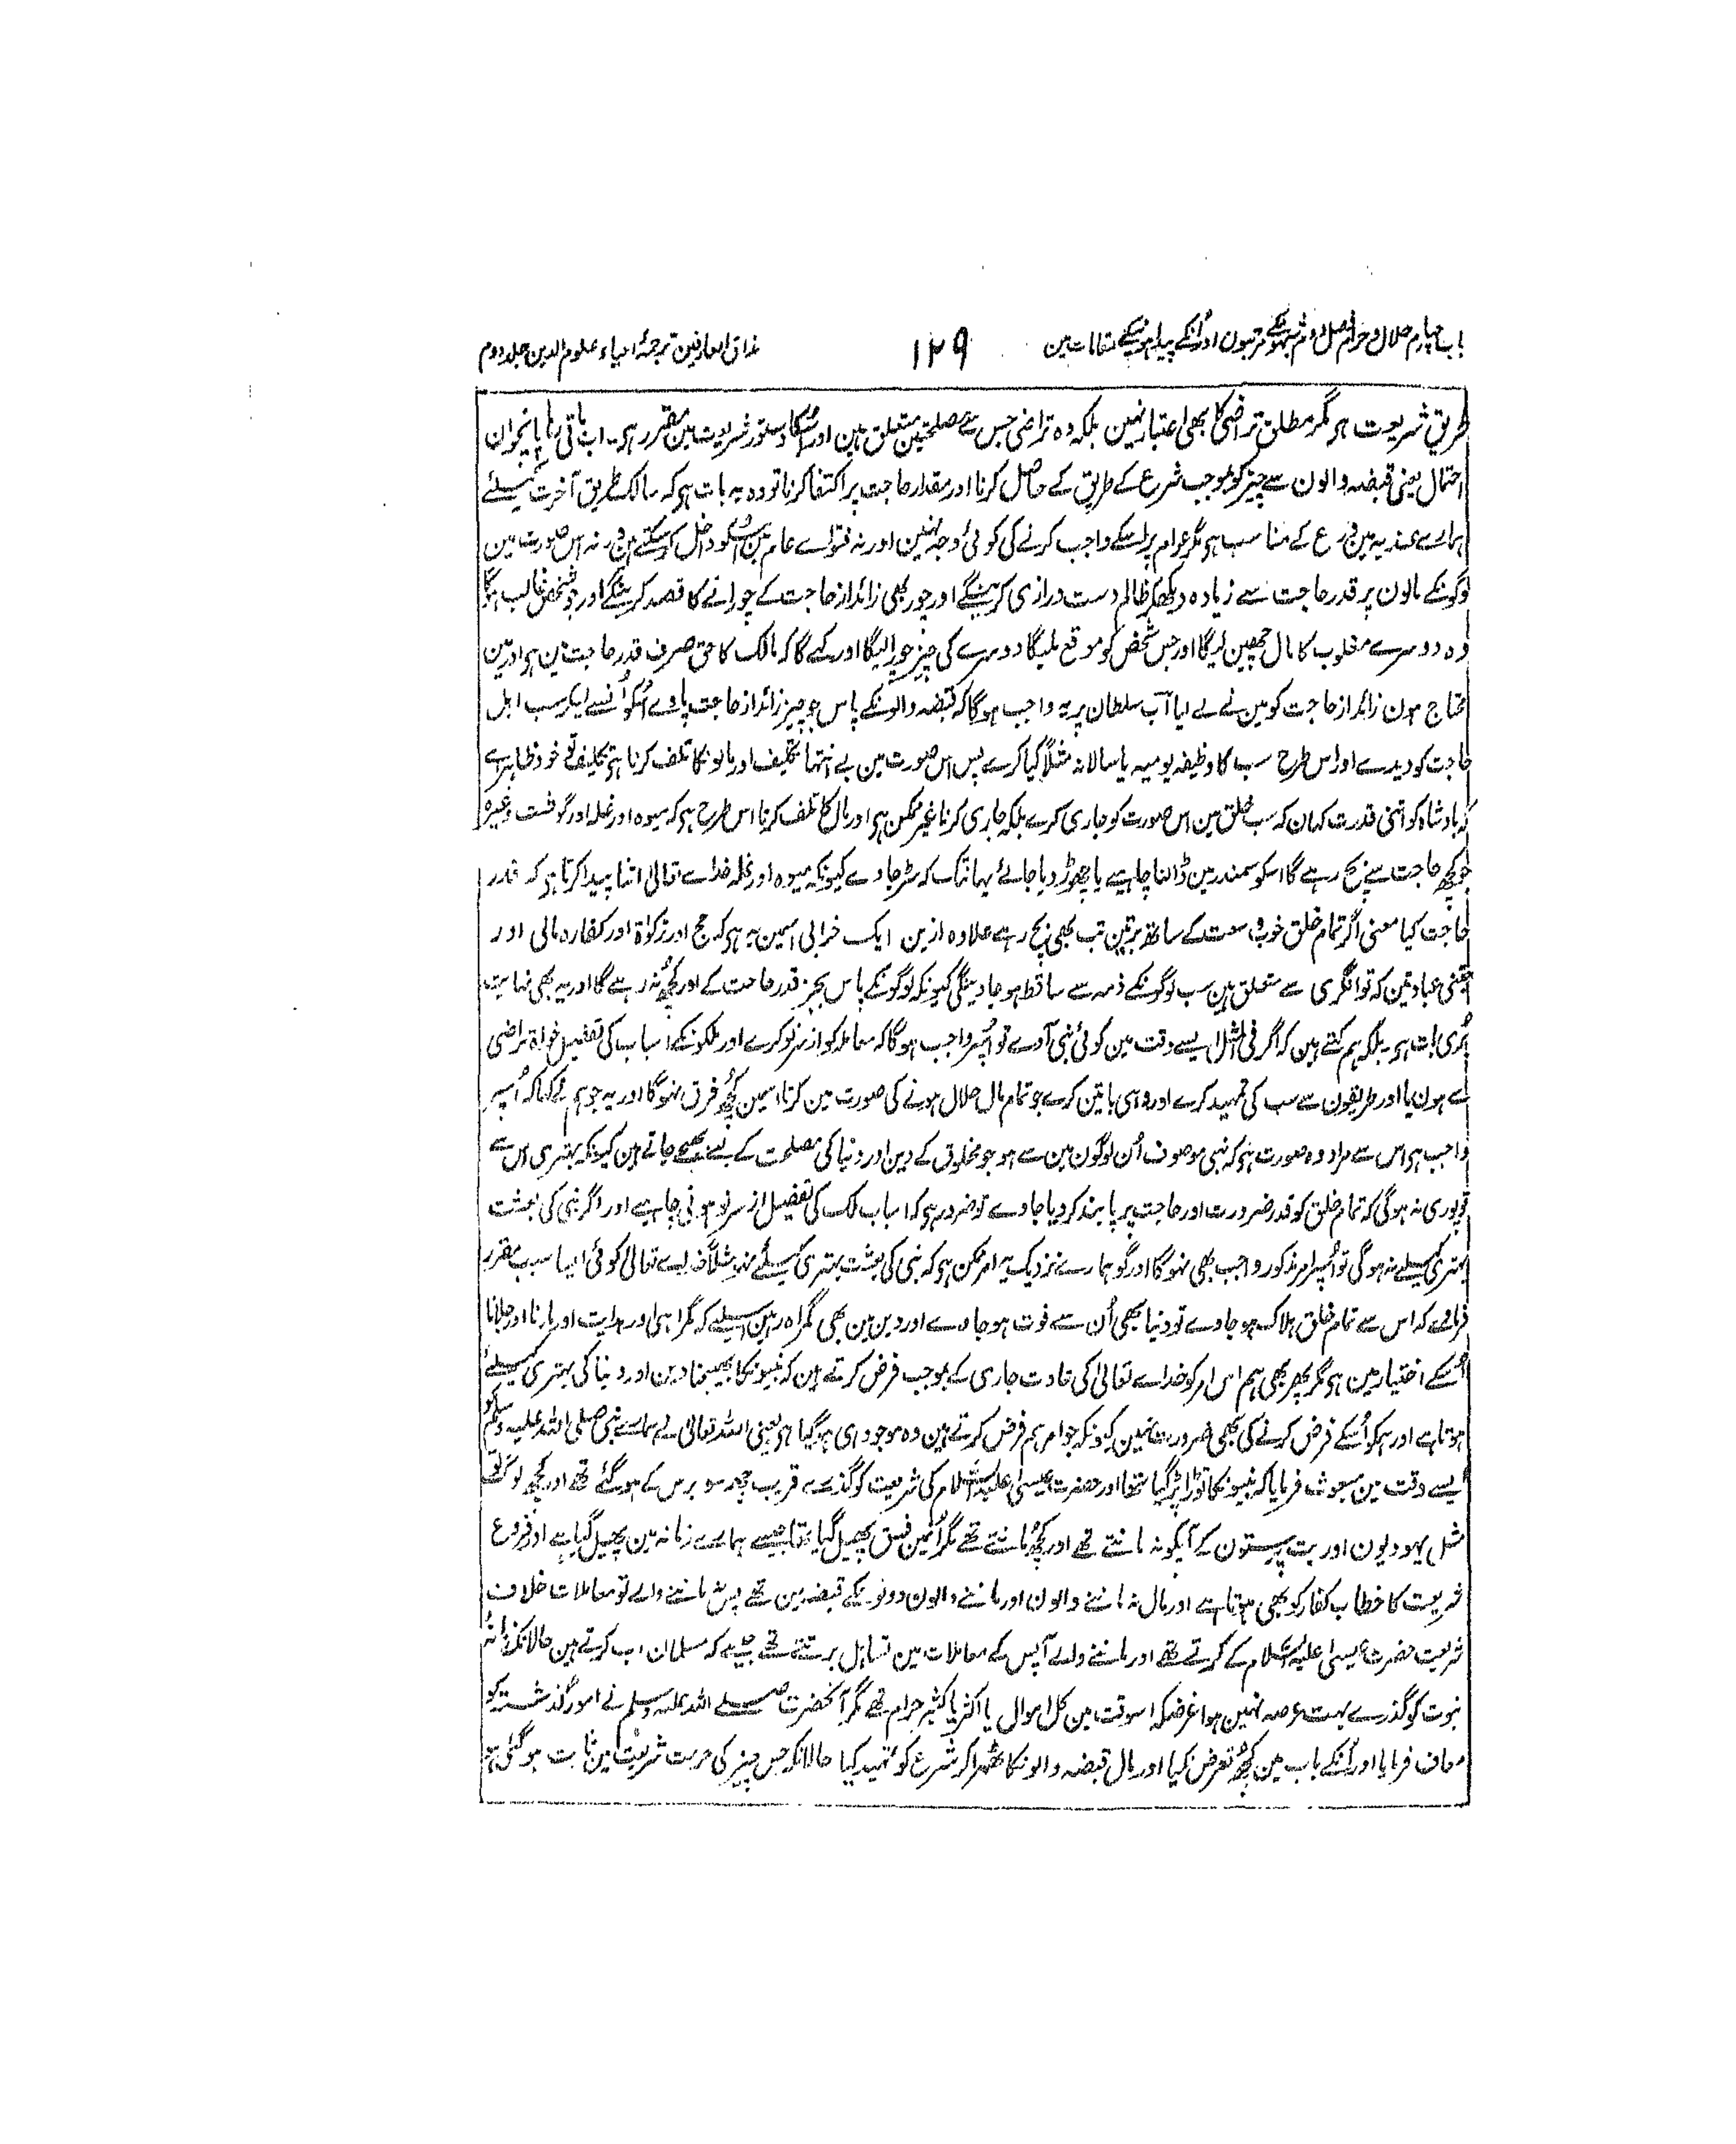 باب چہارم حلال و حرام فصل دوم شبہونکے مرتبون اور اُنکے پیدا ہونیکے مقامات مین
۱۲۹
مذاق العارفین ترجمۂ احیاء علوم الدین جلد دوم
طریق شریعت ہر مگر مطلق تراضی کا بھی اعتبار نہین بلکہ وہ تراضی جس سے مصلحتین متعلق ہین اور اُسکا دستور شریعت مین مقرر ہو۔ اب باقی رہا پانچوان
احتمال یعنی قبضہ والون سے چیز کو بموجب شرع کے طریق کے حاصل کرنا اور مقدار حاجت پر اکتفا کرنا تو وہ یہ بات ہو کہ سالک طریق آخرت کیسلئے
ہمارے عندیہ مین ورع کے مناسب ہو مگر عوام پر اسکے واجب کرنے کی کوئی وجہ نہین اور نہ فتواے عام مین اُسکو داخل کر سکتے ہین ورنہ اس صورت مین
لوگونکے مالون پر قدر حاجت سے زیادہ دیکھکر ظالم دست درازی کرینگے اور چور بھی زائد از حاجت کے چورانے کا قصد کرینگے اور جو شخص غالب ہوگا
وہ دوسرے مغلوب کا مال چھین لیگا اور جس شخص کو موقع ملیگا دوسرے کی چیز چورالیگا اور کہے گا کہ مالک کا حق صرف قدر حاجت مین ہو اور مین
محتاج ہون زائد از حاجت کو مین نے لے لیا آب سلطان پر یہ واجب ہوگا کہ قبضہ والونکے پاس جو چیز زائد از حاجت پاوے اُسکو اُنسے لیکر سب اہل
حاجت کو دیدے اور اس طرح سب کا وظیفہ یومیہ یا سالانہ مثلاً کیا کرے پس اس صورت مین بے انتہا تکلیف اور مالونکا تلف کرنا ہو تکلیف تو خود ظاہر ہے
کہ بادشاہ کو اتنی قدرت کہان کہ سب خلق مین اس صورت کو جاری کرے بلکہ جاری کرنا غیر ممکن ہو اور مال کا تلف کرنا اس طرح ہو کہ میوہ اور غلہ اور گوشت وغیرہ
جو کچھ حاجت سے بچ رہے گا اسکو سمندر مین ڈالنا چاہیے یا چھوڑ دیا جائے یہانتک کہ سڑ جاوے کیونکہ میوہ اور غلہ خداے تعالیٰ اتنا پیدا کرتا ہو کہ قدر
حاجت کیا معنی اگر تمام خلق خوب وسعت کے ساتھ برتین تب بھی بچ رہے علاوہ ازین ایک خرابی اسمین یہ ہو کہ حج اور زکوٰۃ اور کفارہ مالی اور
جتنی عبادتین کہ توانگری سے متعلق ہین سب لوگونکے ذمہ سے ساقط ہو جاوینگی کیونکہ لوگونکے پاس بجز قدر حاجت کے اور کچھ نہ رہے گا اور یہ بھی نہایت
بُری بات ہو۔ بلکہ ہم کہتے ہین کہ اگر فی المثل ایسے وقت مین کوئی نبی آوے تو اُسپر واجب ہوگا کہ معاملہ کو از سرنو کرے اور ملکونکے اسباب کی تفصیل خواہ تراضی
سے ہون یا اور طریقون سے سب کی تمہید کرے اور وہی باتین کرے جو تمام مال حلال ہونے کی صورت مین کرتا اسمین کچھ فرق نہوگا اور یہ جو ہم نے کہا کہ اُسپر
واجب ہو اس سے مراد وہ صورت ہو کہ نبی موصوف اُن لوگون مین سے ہو جو مخلوق کے دین اور دنیا کی مصلحت کے لئے بھیجے جاتے ہین کیونکہ بہتری اس سے
تو پوری نہ ہوگی کہ تمام خلق کو قدر ضرورت اور حاجت پر پابند کر دیا جاوے تو ضرور ہو کہ اسباب ملک کی تفصیل از سر نو ہونی چاہیے اور اگر نبی کی بعثت
بہتری کیسلئے نہ ہوگی تو اُسپر امر مذکور واجب بھی نہوگا اور گو ہمارے نزدیک یہ امر ممکن ہو کہ نبی کی بعثت بہتری کیسلئے نہو مثلاً خداے تعالیٰ کوئی ایسا سبب مقرر
فرماوے کہ اس سے تمام خلق ہلاک ہو جاوے تو دنیا بھی اُن سے فوت ہو جاوے اور دین مین بھی گمراہ رہین اسلیے کہ گمراہی اور ہدایت اور مارنا اور جلانا
اُسکے اختیار مین ہو مگر پھر بھی ہم اس امر کو خداے تعالیٰ کی عادت جاری کے بموجب فرض کرتے ہین کہ نبیونکا بھیجنا دین اور دنیا کی بہتری کیسلئے
ہوتا ہے اور ہمکو اُسکے فرض کرنے کی بھی ضرورت نہین کیونکہ جو امر ہم فرض کرتے ہین وہ موجود ہی ہو گیا ہو یعنی اللہ تعالیٰ نے ہمارے نبی صلی اللہ علیہ وسلم کو
ایسے وقت مین مبعوث فرمایا کہ نبیونکا توڑا پڑ گیا تھا اور حضرت عیسیٰ علیہ السلام کی شریعت کو گذرے قریب چھ سو برس کے ہو گئے تھے اور کچھ لوگ تو
مثل یہودیون اور بت پرستون کے آپکو نہ مانتے تھے اور کچھ مانتے تھے مگر اُنمین فسق پھیل گیا تھا جیسے ہمارے زمانہ مین پھیل گیا ہے اور فروع
شریعت کا خطاب کفار کو بھی ہوتا ہے اور مال نہ ماننے والون اور ماننے والون دونونکے قبضہ مین تھے پس نہ ماننے والے تو معاملات خلاف
شریعت حضرت عیسیٰ علیہ السلام کے کرتے تھے اور ماننے والے آپس کے معاملات مین تساہل برتتے تھے جیسے کہ مسلمان اب کرتے ہین حالانکہ زمانہ
نبوت کو گذرے بہت عرصہ نہین ہوا غرضکہ اسوقت مین کل اموال یا اکثر یا کثیر حرام تھے مگر آنحضرت صلے اللہ علیہ وسلم نے امور گذشتہ کو
معاف فرمایا اور اُنکے باب مین کچھ تعرض نکیا اور مال قبضہ والونکا ٹھہرا کر شرع کو تمہید کیا حالانکہ جس چیز کی حرمت شریعت مین ثابت ہو گئی ہو